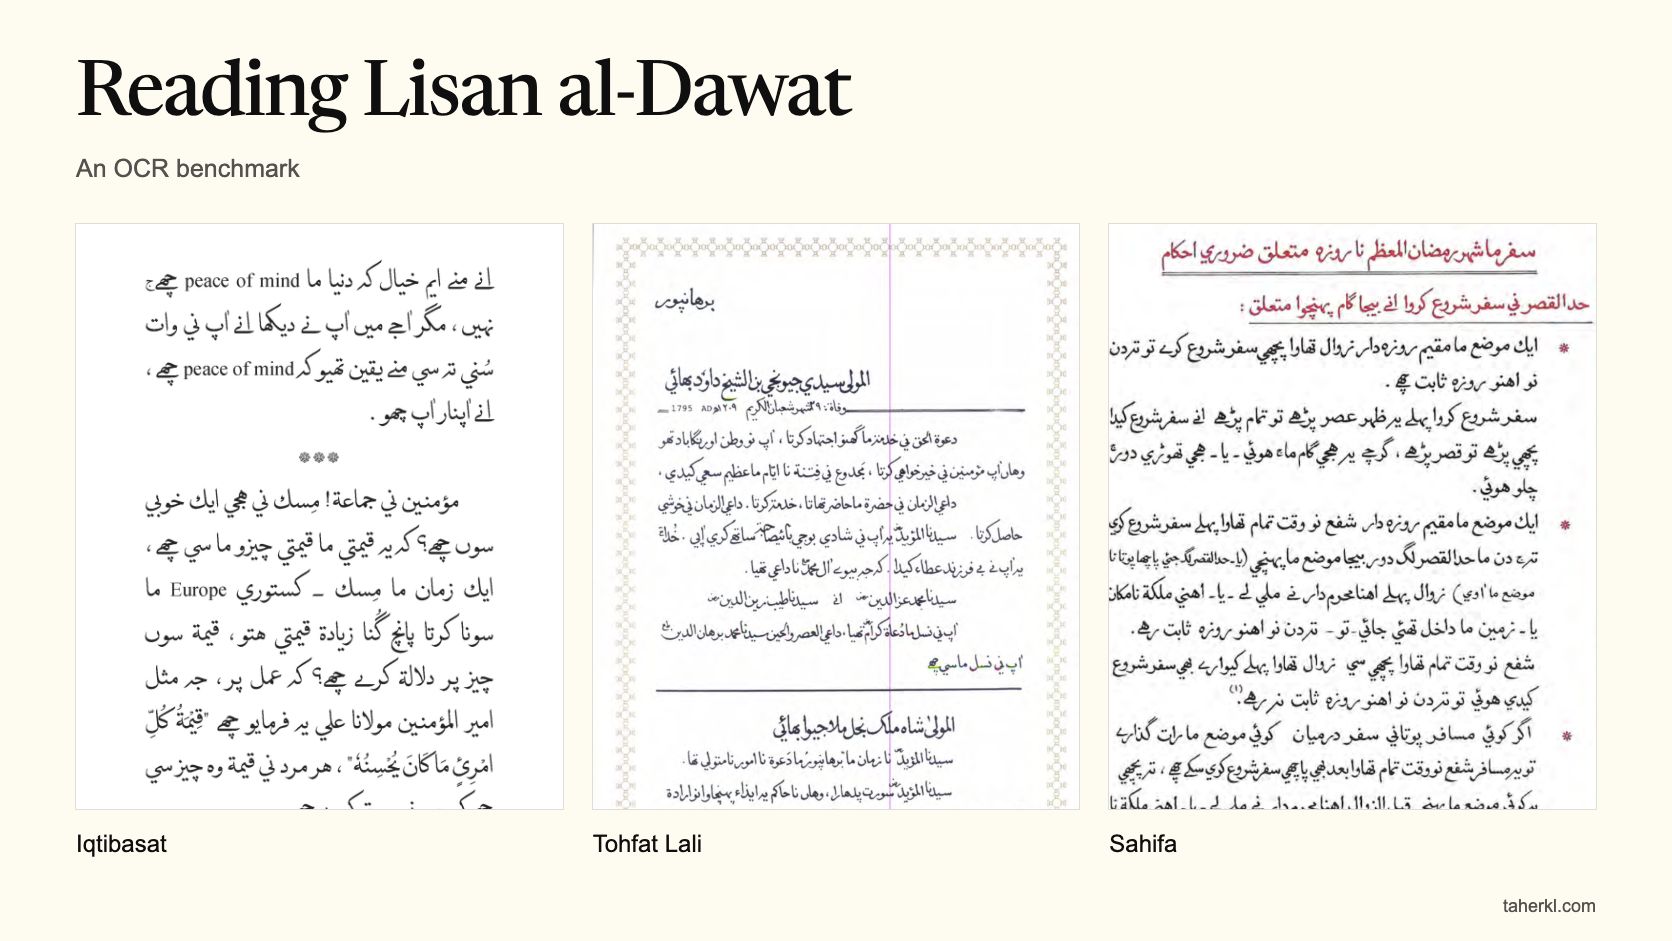 Reading Lisan al-Dawat
An OCR benchmark
انے منے ايم خيال كہ دنيا ما peace of mind چھے ج
نہيں ، مگر اٰجے ميں اٰپ نے ديكھا انے اٰپ ني وات
سُني تہ سي منے يقين تھيو كہ peace of mind چھے ،
انے اٰپنا راٰپ چھو .
مؤمنين ني جماعة! مِسك ني هجي ايك خوبي
سوں چھے؟ كہ يہ قيمتي ما قيمتي چيزو ما سي چھے ،
ايك زمان ما مِسك ــ كستوري Europe ما
سونا كرتا پانچ گُنا زيادة قيمتي هتو ، قيمة سوں
چيز پر دلالة كرے چھے؟ كہ عمل پر ، جہ مثل
امير المؤمنين مولانا علي يہ فرمايو چھے "قِيْمَةُ كُلِّ
امْرِئٍ مَا كَانَ يُحْسِنُهٗ" ، هر مرد ني قيمة وه چيز سي
Iqtibasat
برهانپور
المولى سيدي جيونجي بن الشيخ داود بهائي
وفاة: ٢٩ شهر شعبان الكريم ١٢٠٩هـ 1795 AD
دعوة الحق ني خدمة ما گهنو اجتهاد كرتا ، اٰپ نو وطن اورنگاباد تھو
وهاں اٰپ مؤمنين ني خير خواهي كرتا ، مجدوع ني فِتنة نا ايّام ما عظيم سعي كيدي ،
داعي الزمان ني حضرة ما حاضر تھاتا ، خدمة كرتا . داعي الزمان ني خوشي
حاصل كرتا . سيدنا المؤيد يہ اٰپ ني شادي بوجي بائي صاحبة ساتھے كري اٰپي . خُدا
يہ اٰپ نے بے فرزند عطاء كيدا . كہ جہ بيوے اٰل محمد نا داعي تھيا .
سيدنا محمد عز الدين انے سيدنا طيب زين الدين
اٰپ ني نسل ما دُعاة كرام تھيا ، داعي العصر والحين سيدنا محمد برهان الدين
اٰپ ني نسل ما سي چھے
المولىٰ شاه ملك بن نجل ملا جيوا بهائي
سيدنا المؤيد نا زمان ما برهانپور ما دَعوة نا امور نا متولي تھا .
سيدنا المؤيد سورت پدهارا ، وهاں نا حاكم يہ ايذاء پهنچاوا نو ارادة
Tohfat Lali
سفر ما شهر رمضان المعظم نا روزه متعلق ضروري احكام
حد القصر ني سفر شروع كروا انے بيجا گام پہنچوا متعلق :
ايك موضع ما مقيم روزه دار زوال تھاوا پچھي سفر شروع كرے تو تہ دن
نو اهنو روزه ثابت چھے .
سفر شروع كروا پہلے يہ ظهر عصر پڑهے تو تمام پڑهے انے سفر شروع كيدا
پچھي پڑهے تو قصر پڑهے ، گرچہ يہ هجي گام ماء هوئي ۔ يا ۔ هجي تھوڑي دورج
چلو هوئي .
ايك موضع ما مقيم روزه دار شفع نو وقت تمام تھاوا پہلے سفر شروع كري
تہ ج دن ما حد القصر لگ دور بيجا موضع ما پہنچي (يا۔ حد القصر لگ جئي پاچھا پوتا نا
موضع ما اٰوي) زوال پہلے اهنا محرم دار نے ملي لے ۔ يا ۔ اهني ملكة نا مكان
يا ۔ زمين ما داخل تھئي جائي ۔ تو ۔ تہ دن نو اهنو روزه ثابت رهے .
شفع نو وقت تمام تھاوا پچھي سي زوال تھاوا پہلے كيوارے بھي سفر شروع
كيدي هوئي تو تہ دن نو اهنو روزه ثابت نہ رهے.(١)
اگر كوئي مسافر پوتاني سفر درميان كوئي موضع ما رات گذارے
تو يہ مسافر شفع نو وقت تمام تھاوا بعد بھي پاچھي سفر شروع كري سكے چھے ، تہ پچھي
Sahifa
taherkl.com